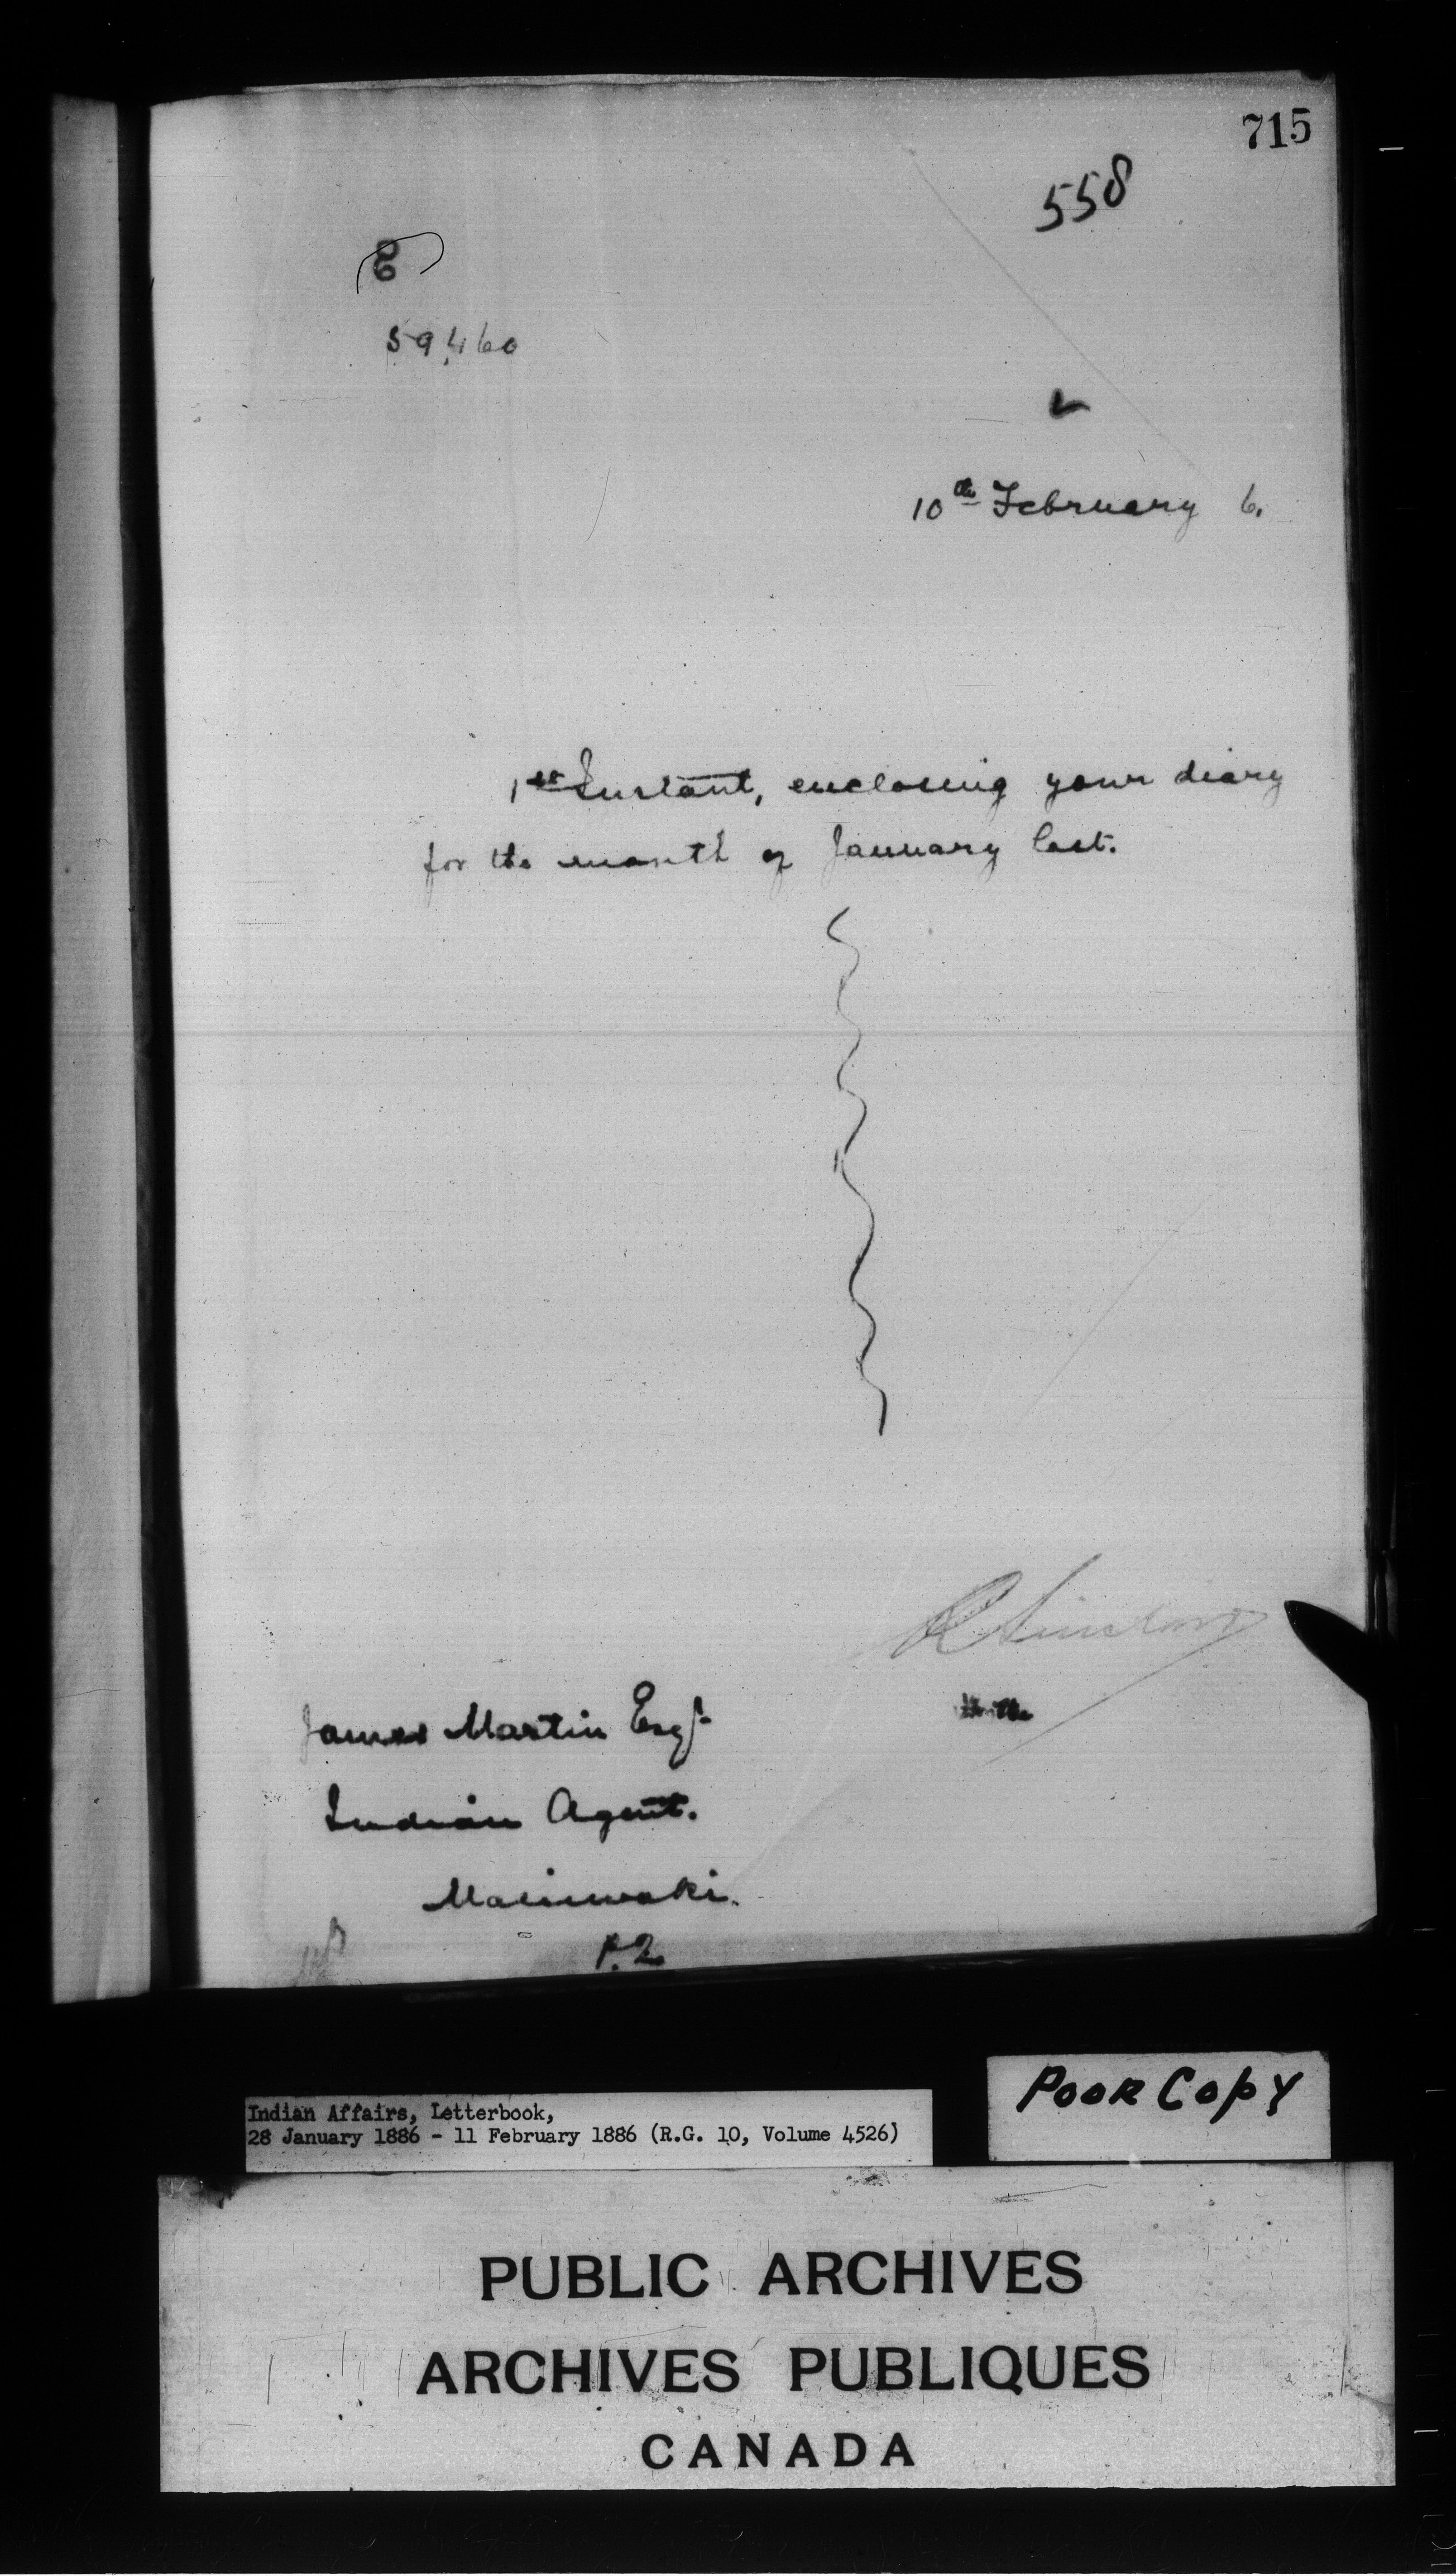 715
558
59,460
10th February 6.
1st Instant, enclosing your diary
for the month of January last.
R Sinclair
James Martin Esqr
Indian Agent.
Maniwaki.
P.2
Poor Copy
Indian Affairs, Letterbook,
28 January 1886 - 11 February 1886 (R.G. 10, Volume 4526)
PUBLIC ARCHIVES
ARCHIVES PUBLIQUES
CANADA